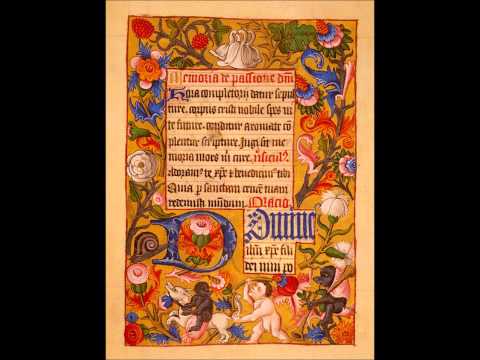 Memoria de passione dm̄
Hora completorij datur sepul
ture. corpus cristi nobile spes vi
te future. conditur aromate cō
plentur scripture. Jugi sit me
moria mors m̄ cure. v̄sicul9.
Adoramus te xp̄e et benedicim9 tibi
Quia p sanctam crucē tuam
redemisti mundum. Oracio
Domine
ih̄u xp̄e fili
dei viui po